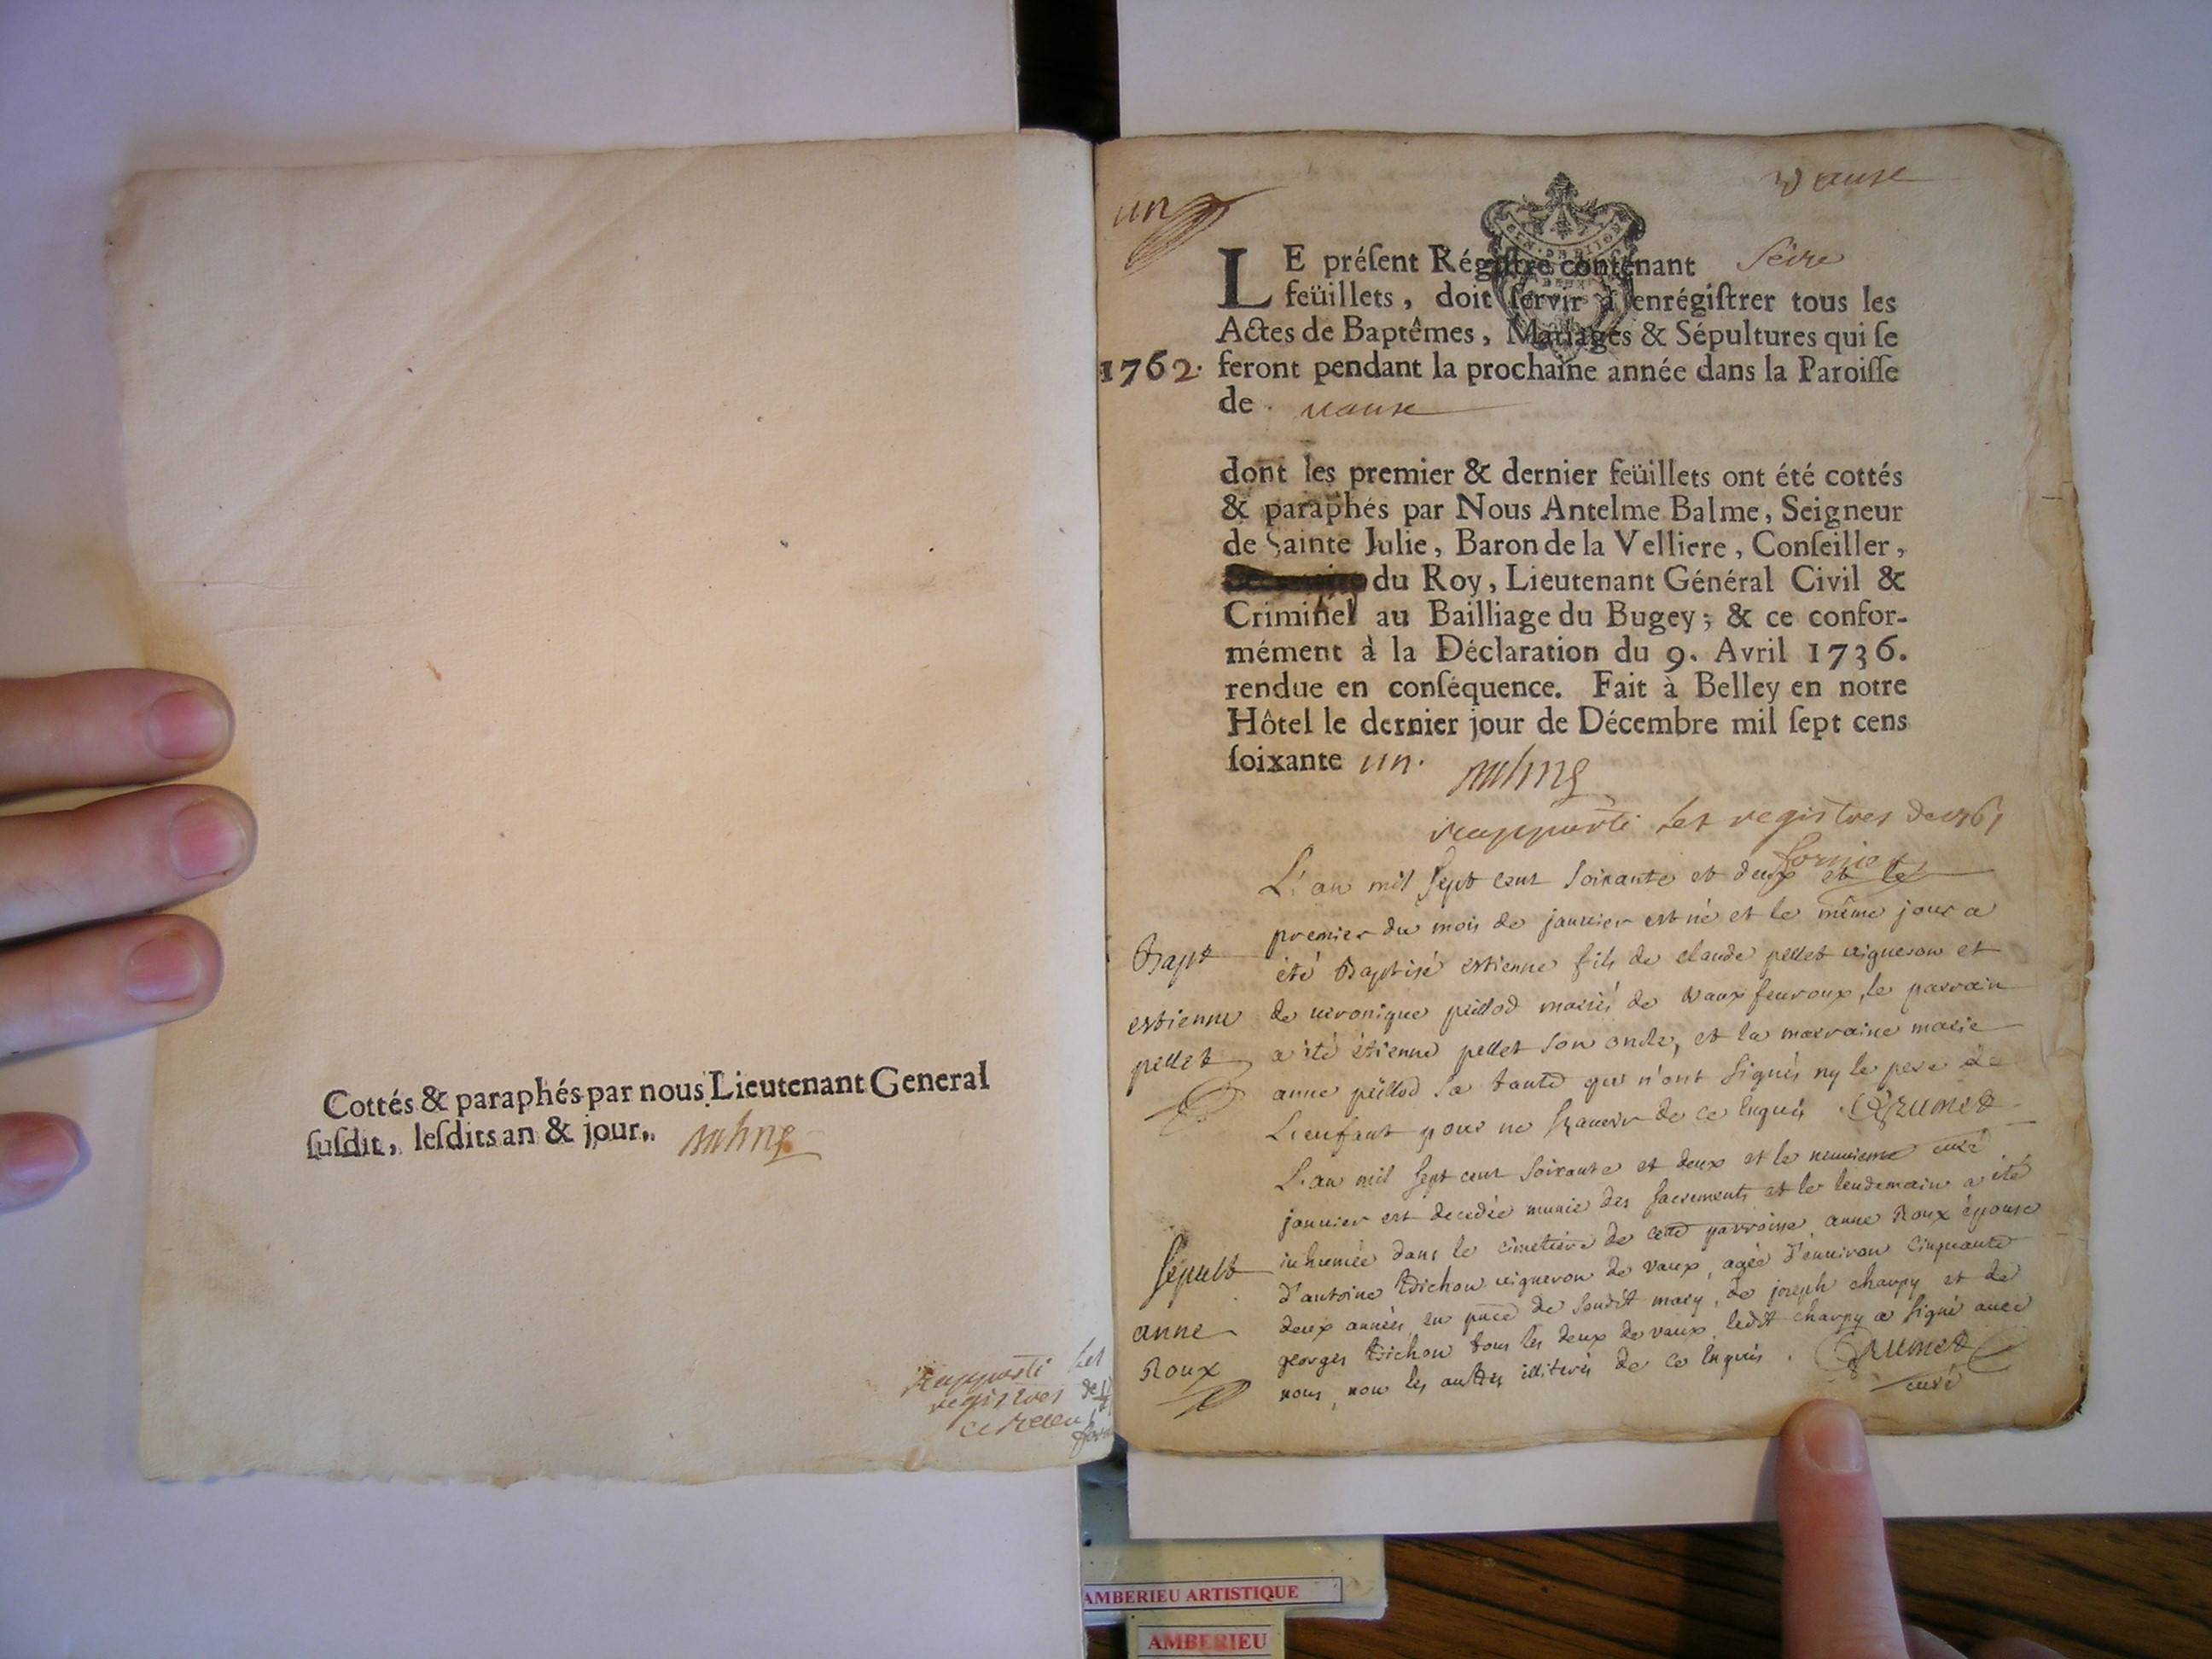 Cottés & paraphés par nous Lieutenant General
ſuſdit, leſdits an & jour.
rapporté les
registres de
un
vaux
GEN. DE DIJON
LE préſent Régiſtre contenant Seize
feüillets, doit ſervir à enrégiſtrer tous les
Actes de Baptêmes, Mariages & Sépultures qui ſe
1762. feront pendant la prochaine année dans la Paroiſſe
de vaux
dont les premier & dernier feüillets ont été cottés
& paraphés par Nous Antelme Balme, Seigneur
de Sainte Julie, Baron de la Velliere, Conſeiller,
du Roy, Lieutenant Général Civil &
Criminel au Bailliage du Bugey; & ce confor-
mément à la Déclaration du 9. Avril 1736.
rendue en conſéquence. Fait à Belley en notre
Hôtel le dernier jour de Décembre mil ſept cens
ſoixante un.
rapporté les registres de 1761
fornier
L'an mil sept cent soixante et deux et le
premier du mois de janvier est né et le même jour a
Bapt été Baptisé estienne fils de claude pellet vigneron et
estienne de veronique peillod mariés de vaux fevroux, le parrain
pellet a été étienne pellet son oncle, et la marraine marie
anne peillod sa tante qui n'ont signés ny le pere de
L'enfant pour ne sçavoir de ce Enquis Brumet
curé
L'an mil sept cent soixante et deux et le neuvieme
janvier est decedée munie des sacrements et le lendemain a été
Sepult inhumée dans le cimetiere de cette parroisse anne Roux épouse
d'antoine Bichon vigneron de vaux, agée d'environ cinquante
anne deux années, en pñce de sondit mary, de joseph charpy et de
Roux georges Bichon tous les deux de vaux, ledit charpy a signé avec
nous, non les autres illiterés de ce Enquis. Brumet
curé
AMBERIEU ARTISTIQUE
AMBERIEU